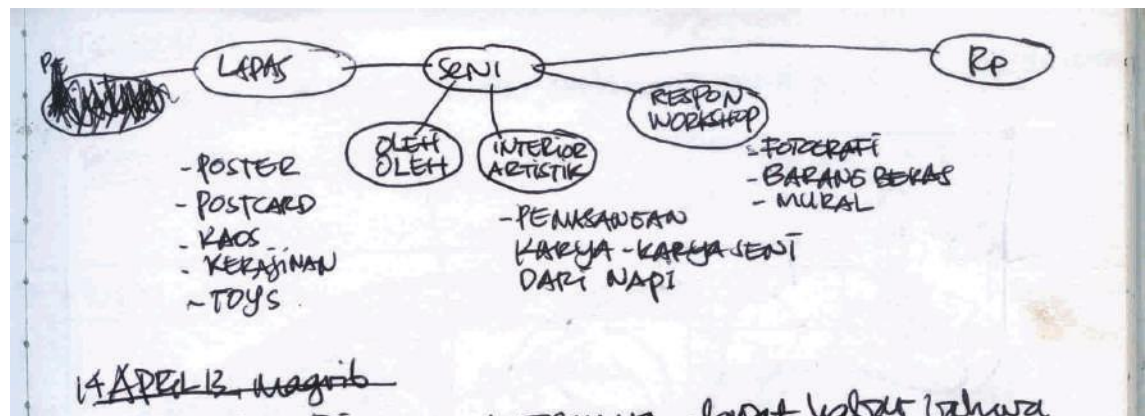 LAPAS
SENI
Rp
OLEH
OLEH
INTERIOR
ARTISTIK
RESPON
WORKSHOP
- POSTER
- POSTCARD
- KAOS
- KERAJINAN
- TOYS
- PEMASANGAN
KARYA-KARYA SENI
DARI NAPI
- FOTOGRAFI
- BARANG BEKAS
- MURAL
14 APRIL 13, magrib
dapat kabar bahwa